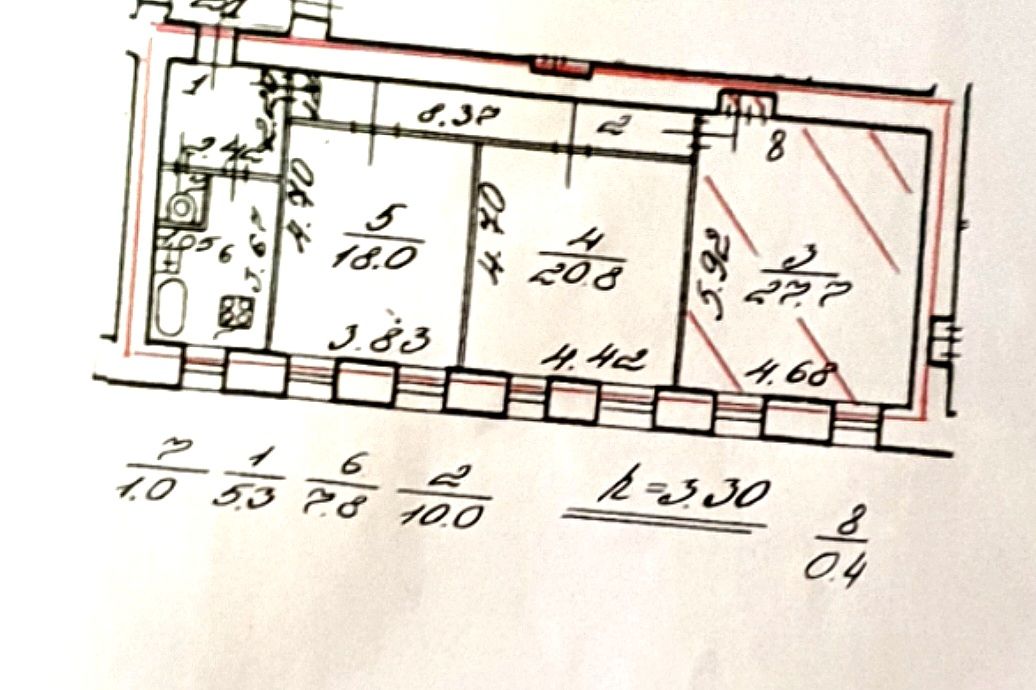 1
8.37
2
8
2.42
4.70
4.70
5.92
5
18.0
4
20.8
3
27.7
1.05
6
3.67
3.83
4.42
4.68
7
1.0
1
5.3
6
7.8
2
10.0
h=3.30
8
0.4